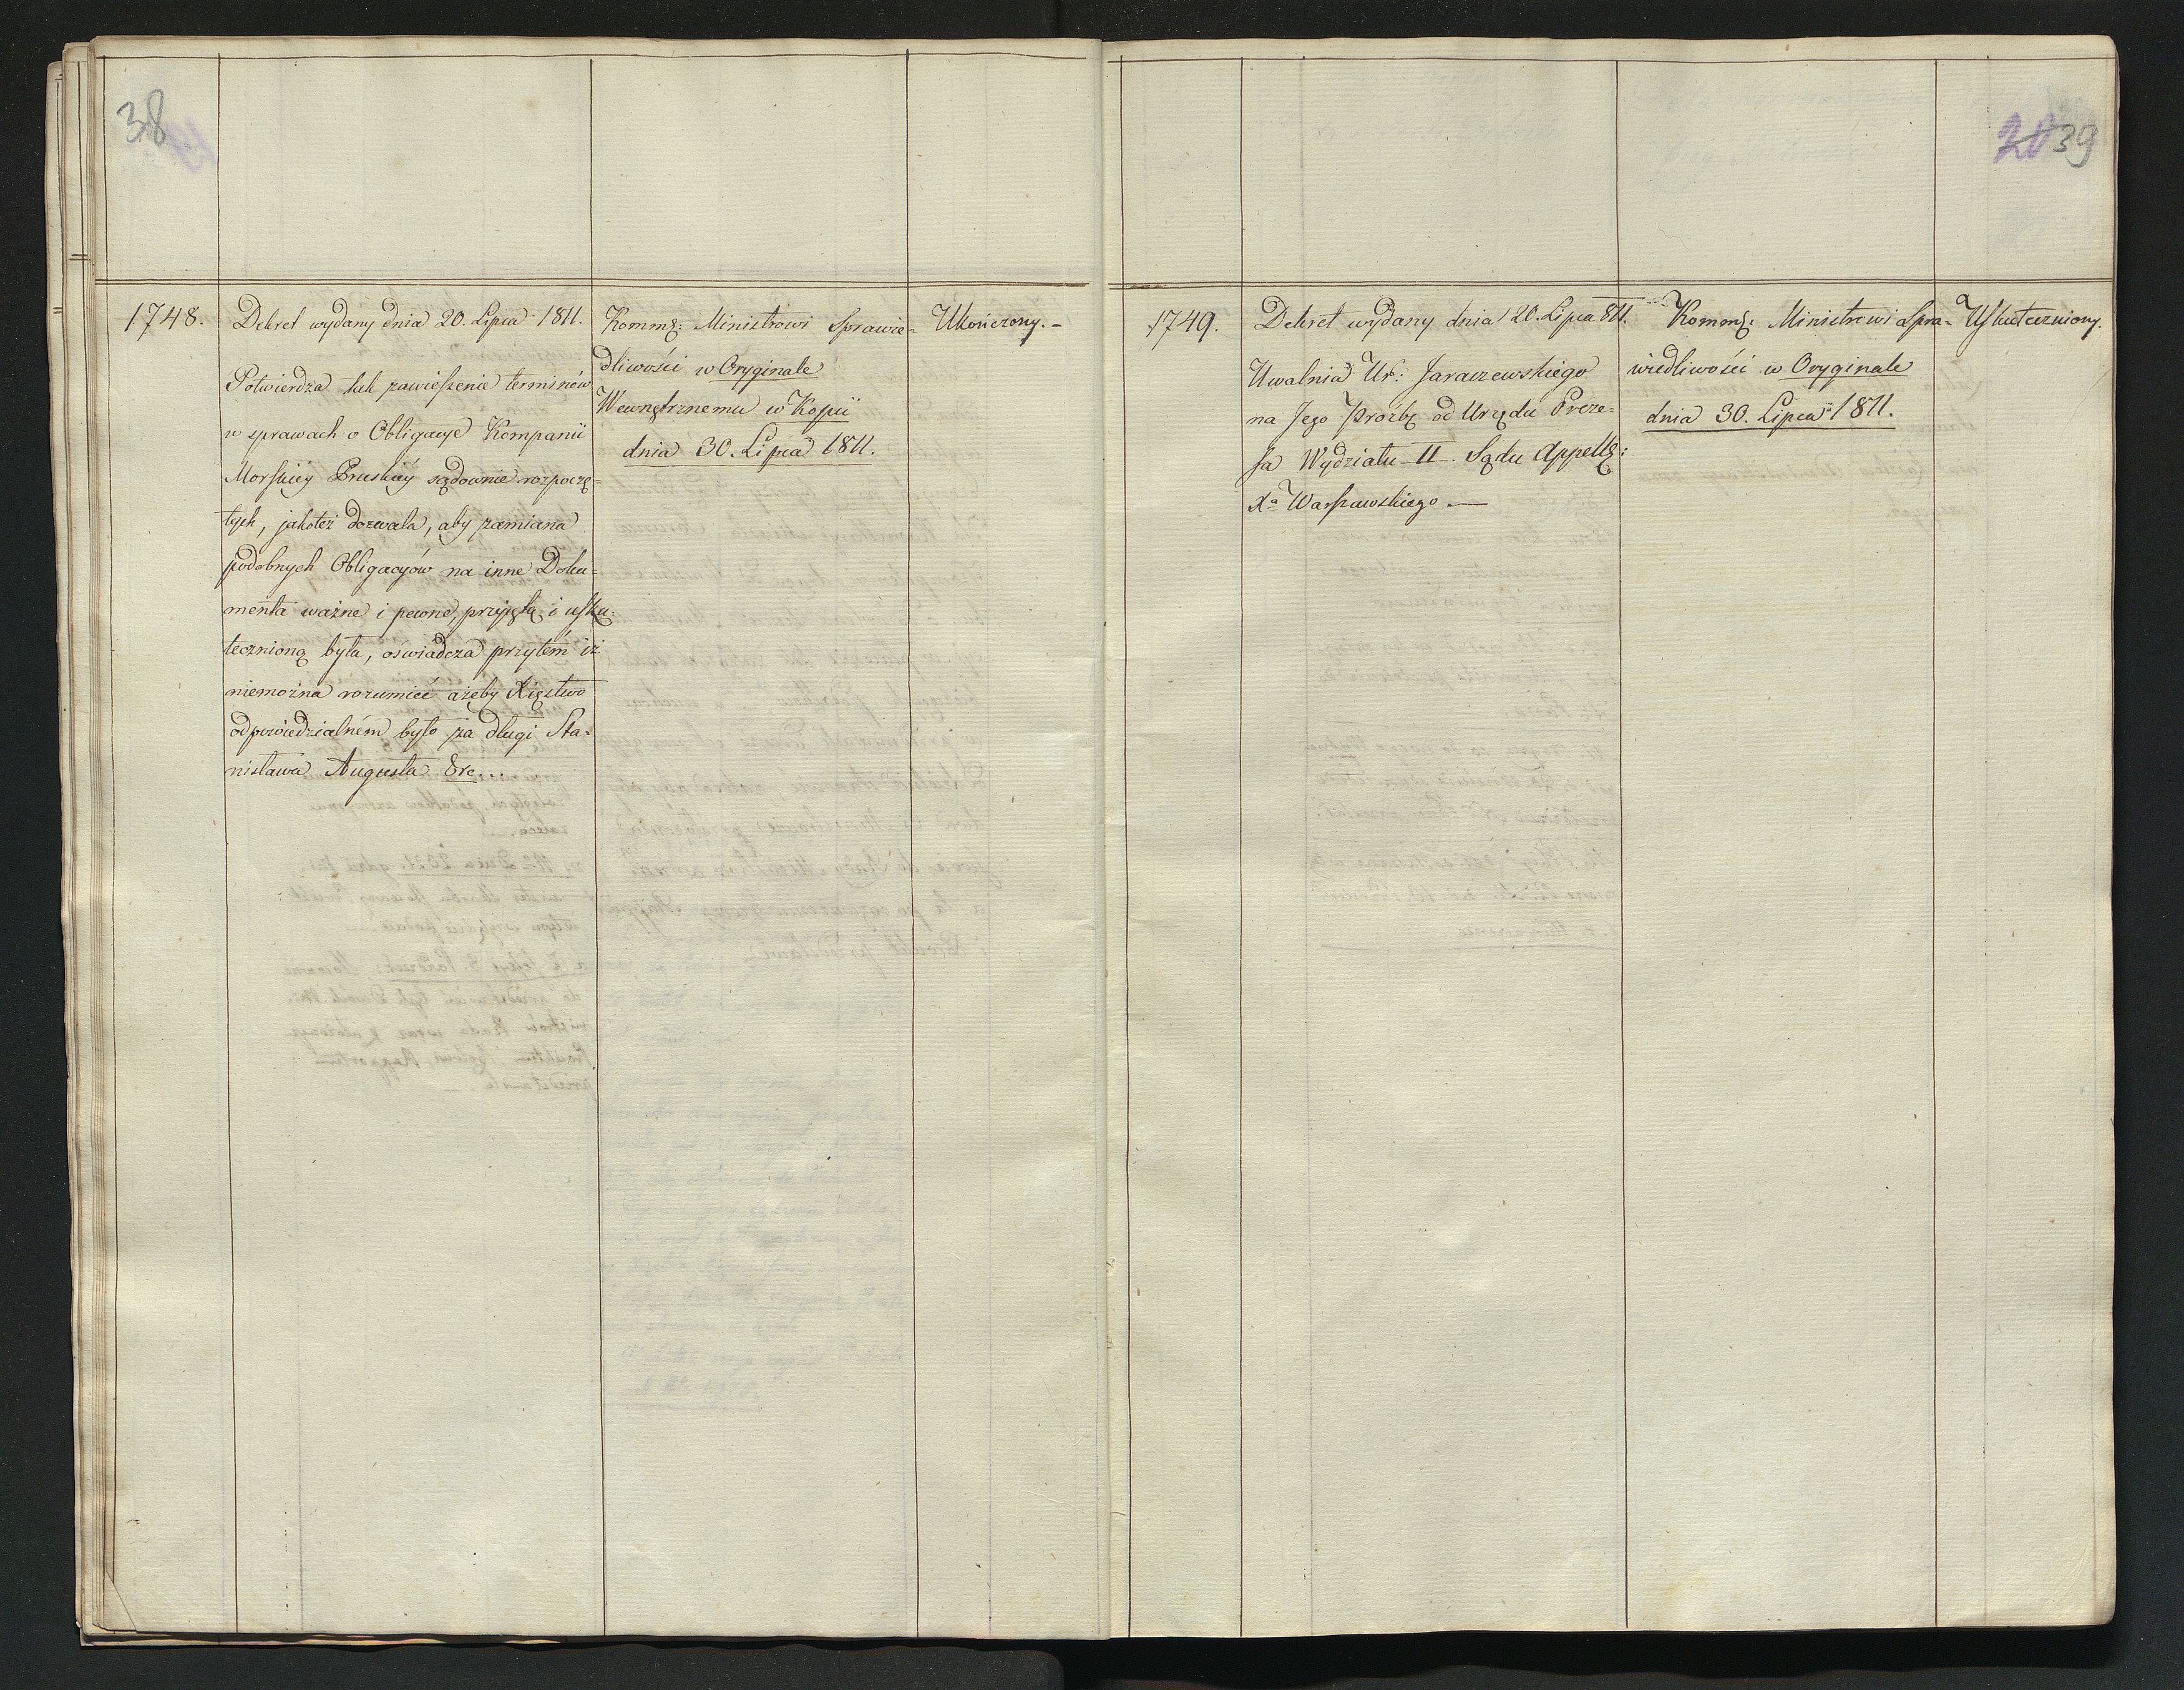 38
1748.
Dekret wydany dnia 20. Lipca 1811.
Potwierdza tak zawieszenie terminów
w sprawach o Obligacye Kompanii
Morskiéy Pruskiéy sądownie rozpoczę-
tych, jakoteż dozwala, aby zamiana
podobnych Obligacyów na inne Doku-
menta ważne i pewne, przyjętą i usku-
tecznioną była, oświadcza przytém iż
niemożna rozumieć ażeby Xięstwo
odpowiedzialném było za długi Sta-
nisława Augusta &c...
Kommę: Ministrowi Sprawie-
dliwości w Oryginale
Wewnętrznemu w Kopii
dnia 30. Lipca 1811.
Ukończony.-
20 39
1749.
Dekret wydany dnia 20. Lipca 811.
Uwalnia Ur: Jaraczewskiego
na Jego Proźbę od Urzędu Preze-
sa Wydziału II. Sądu Appellę:
Xa Warszawskiego.—
Kommę: Ministrowi Spra-
wiedliwości w Oryginale
dnia 30. Lipca 1811.
Uskuteczniony.